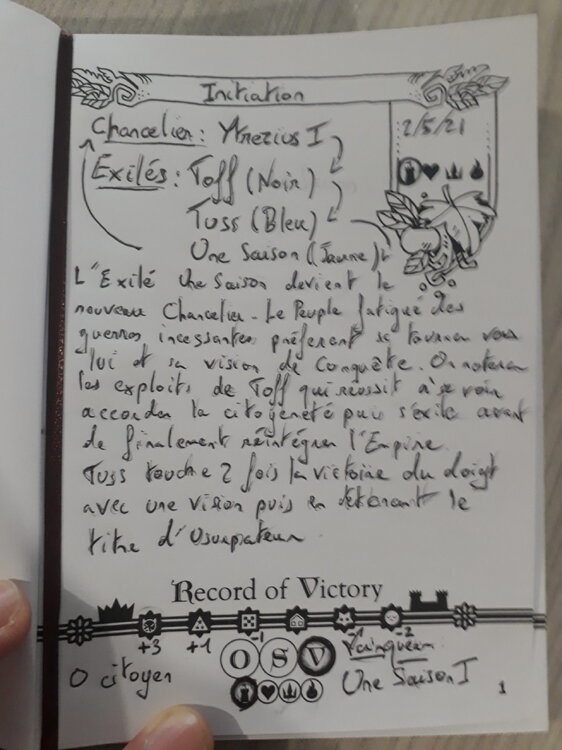 Initiation
2/5/21
Chancelier: Ytrezius I
Exilés: Toff (Noir)
Tuss (Bleu)
Une Saison (Jaune)
L'Exilé Une Saison devient le
nouveau Chancelier. Le Peuple fatigué des
guerres incessantes préférant se tourner vers
lui et sa vision de Conquête. On notera
les exploits de Toff qui réussit à se voir
accorder la citoyenneté puis s'exile avant
de finalement réintégrer l'Empire.
Tuss touche 2 fois la victoire du doigt
avec une vision puis en détenant le
titre d'Usurpateur
Record of Victory
+3 +1 -1 -1 -2
O S V
Vainqueur
0 citoyen
Une Saison I
1